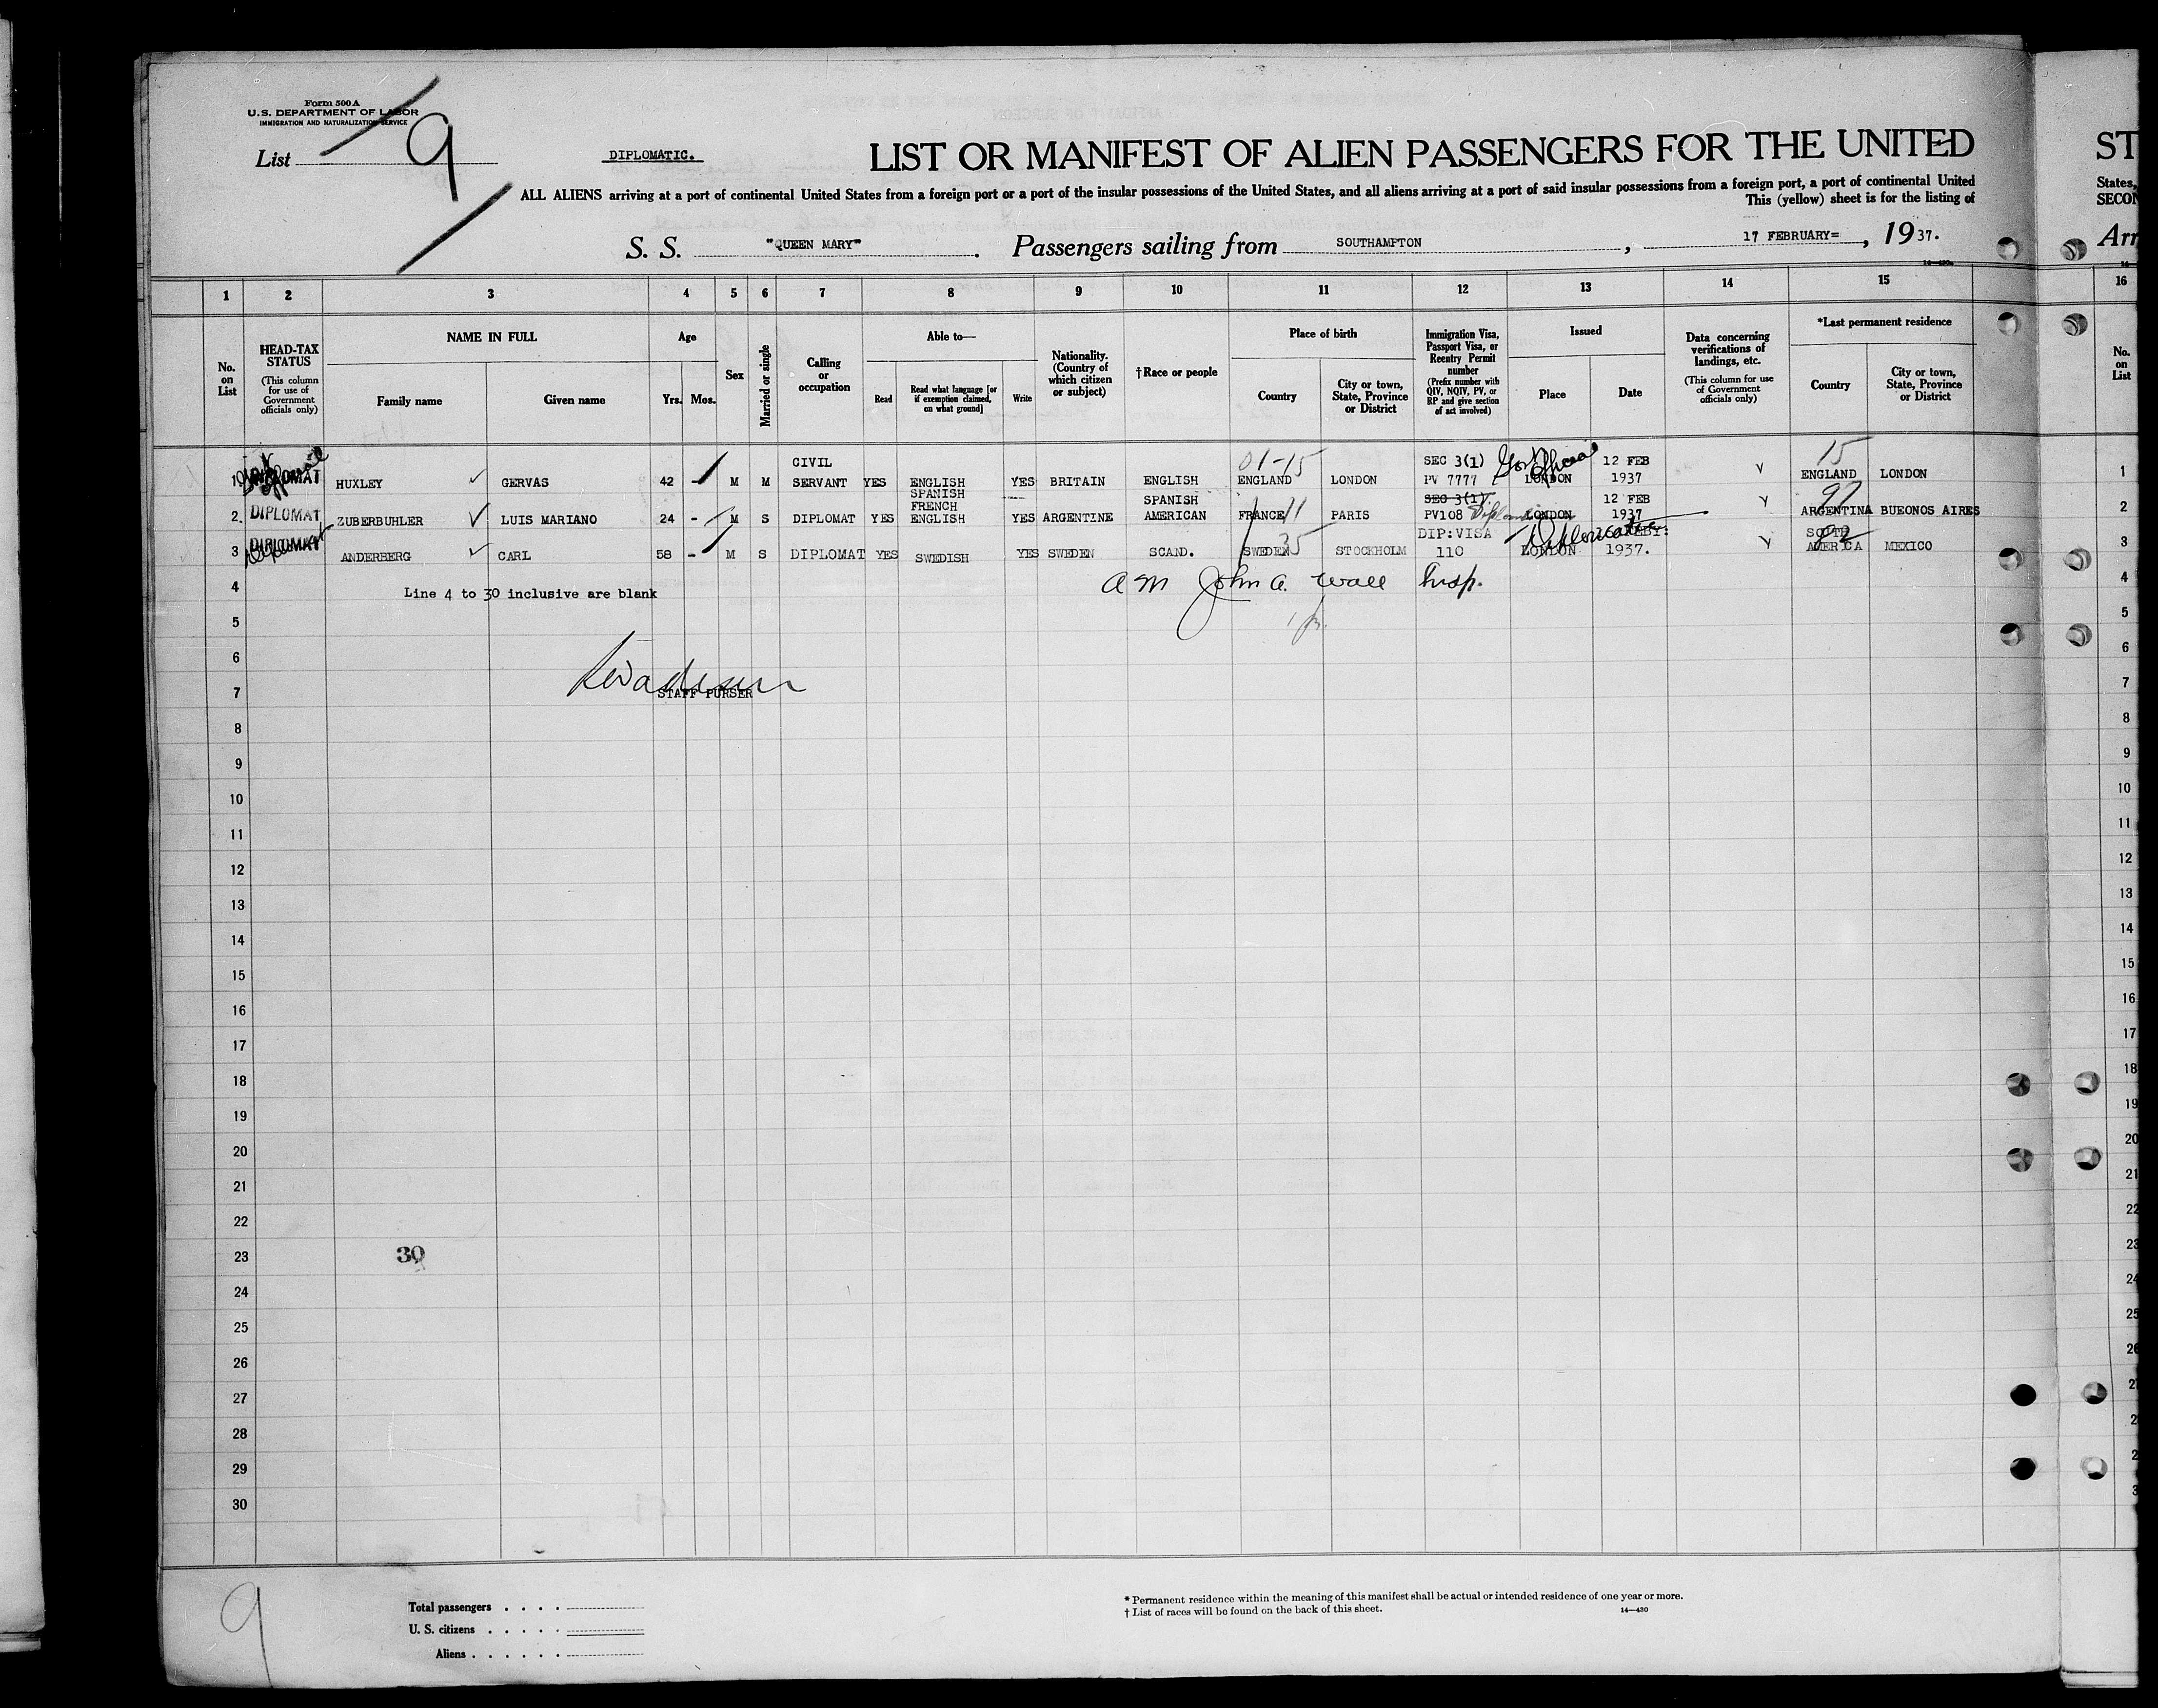 Form 500 A
U.S. DEPARTMENT OF LABOR
IMMIGRATION AND NATURALIZATION SERVICE
List 9
DIPLOMATIC.
LIST OR MANIFEST OF ALIEN PASSENGERS FOR THE UNITED
ST
ALL ALIENS arriving at a port of continental United States from a foreign port or a port of the insular possessions of the United States, and all aliens arriving at a port of said insular possessions from a foreign port, a port of continental United
States,
This (yellow) sheet is for the listing of
SECON
S. S. "QUEEN MARY". Passengers sailing from SOUTHAMPTON, 17 FEBRUARY=, 1937.
Arr
1 2 3 4 5 6 7 8 9 10 11 12 13 14 15 16
No. on List
HEAD-TAX STATUS
(This column for use of Government officials only)
NAME IN FULL
Family name
Given name
Age
Yrs. Mos.
Sex
Married or single
Calling or occupation
Able to—
Read
Read what language [or if exemption claimed, on what ground]
Write
Nationality. (Country of which citizen or subject)
†Race or people
Place of birth
Country
City or town, State, Province or District
Immigration Visa, Passport Visa, or Reentry Permit number
(Prefix number with QIV, NQIV, PV, or RP and give section of act involved)
Issued
Place
Date
Data concerning verifications of landings, etc.
(This column for use of Government officials only)
*Last permanent residence
Country
City or town, State, Province or District
No. on List
1 DIPLOMAT HUXLEY GERVAS 42 - M M CIVIL SERVANT YES ENGLISH YES BRITAIN ENGLISH 01-15 ENGLAND LONDON SEC 3(1) PV 7777 Gov Official LONDON 12 FEB 1937 15 ENGLAND LONDON 1
2 DIPLOMAT ZUBERBUHLER LUIS MARIANO 24 - M S DIPLOMAT YES SPANISH FRENCH ENGLISH YES ARGENTINE SPANISH AMERICAN FRANCE 11 PARIS SEC 3(1) PV108 LONDON 12 FEB 1937 ARGENTINA BUEONOS AIRES 2
3 DIPLOMAT ANDERBERG CARL 58 - M S DIPLOMAT YES SWEDISH YES SWEDEN SCAND. SWEDEN 35 STOCKHOLM DIP:VISA 110 LONDON 1937. SOUTH AMERICA MEXICO 3
4 Line 4 to 30 inclusive are blank 4
John A. Wall Insp.
5 5
6 6
7 STAFF PURSER 7
8 8
9 9
10 10
11 11
12 12
13 13
14 14
15 15
16 16
17 17
18 18
19 19
20 20
21 21
22 22
23 30 23
24 24
25 25
26 26
27 2
28 2
29 2
30 3
9
Total passengers . . . .
U. S. citizens . . . . .
Aliens . . . . . .
* Permanent residence within the meaning of this manifest shall be actual or intended residence of one year or more.
† List of races will be found on the back of this sheet.
14—430